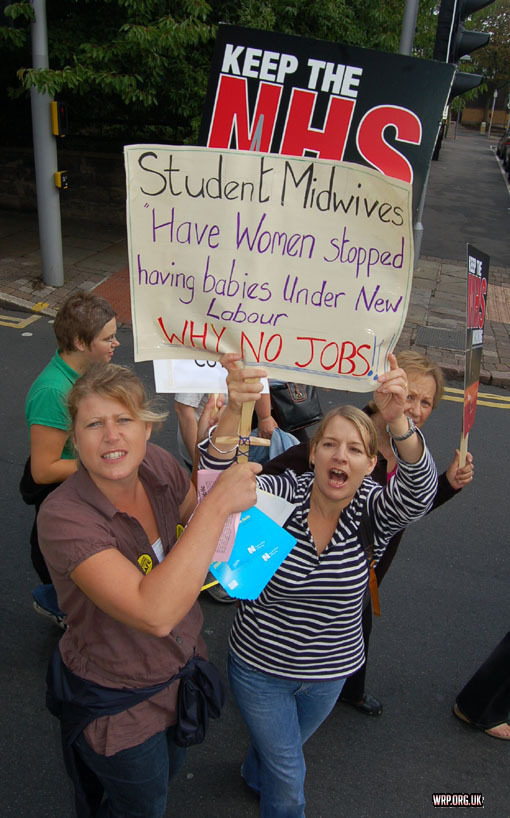 KEEP THE
NHS
Student Midwives
"Have Women stopped
having babies Under New
Labour
WHY NO JOBS!!
KEEP THE
NHS
WRP.ORG.UK